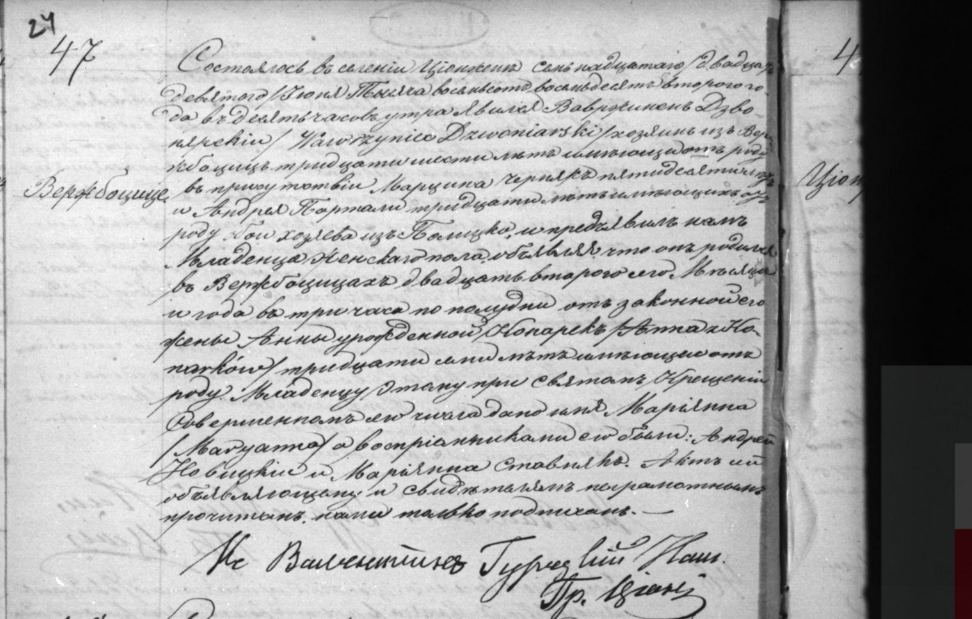 24
47
Вержбощице
Состоялось въ селеніи Ціонжень семнадцатаго /двадцать
девятого/ Іюня Тысяча восемьсотъ восемьдесятъ второго го-
да въ десять часовъ утра явился Вавржинецъ Дзво-
нярскій /Wawrzyniec Dzwoniarski/ хозяинъ изъ Вер-
жбощицъ тридцати шести лѣтъ имѣющій отъ роду
въ присутствіи Марцина Чернякъ пятидесяти
и Андрея тридцати лѣтъ имѣющихъ отъ
роду оба хозяева изъ и предъявилъ намъ
Младенца женскаго пола, объявляя что онъ родился
въ Вержбощицахъ двадцать второго сего Мѣсяца
и года въ три часа по полудни отъ законной его
жены Анны урожденной Копарекъ /Anna z Ko-
parków/ тридцати лѣтъ имѣющею отъ
роду Младенцу этому при святомъ Крещеніи
совершенномъ сего числа дано имя Маріянна
/Maryanna/ а воспріемниками его были: Андрей
Новицкій и Маріянна Ставнякъ. Актъ сей
объявляющему и свидѣтелямъ неграмотнымъ
прочитанъ, нами только подписанъ. —
Кс Валентинъ Наст.
Пр.
4
Ціон